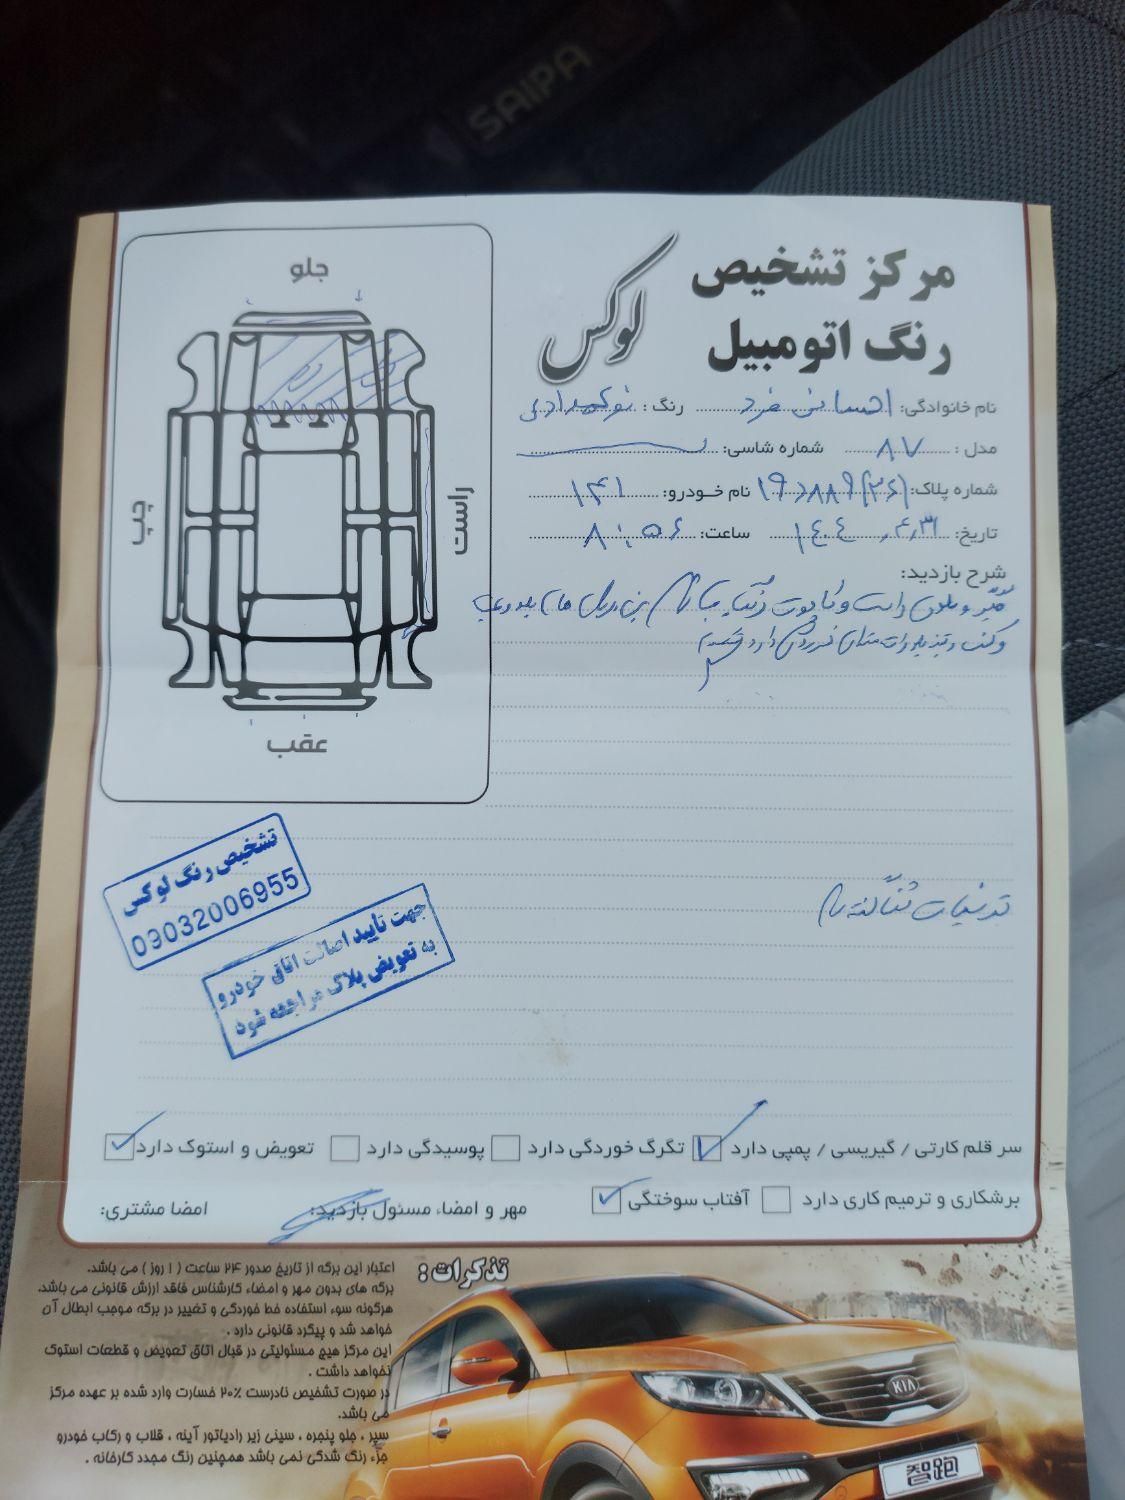 SAIPA
مرکز تشخیص
رنگ اتومبیل
لوکس
نام خانوادگی: احسانی فرد رنگ: نوکمدادی
مدل: ۸۷ شماره شاسی:
شماره پلاک: ۱۹د۸۸۹(۳۶) نام خودرو: ۱۴۱
تاریخ: ۱۴۰۴،۴،۳۱ ساعت: ۸:۵۶
شرح بازدید:
راست و کاپوت
و کف
جلو
چپ
راست
عقب
تشخیص رنگ لوکس
09032006955
جهت تأیید اصالت اتاق خودرو
به تعویض پلاک مراجعه شود
سر قلم کارتی / گیریسی / پمپی دارد تگرگ خوردگی دارد پوسیدگی دارد تعویض و استوک دارد
برشکاری و ترمیم کاری دارد آفتاب سوختگی
مهر و امضاء مسئول بازدید: امضا مشتری:
تذکرات:
اعتبار این برگه از تاریخ صدور ۲۴ ساعت (۱ روز) می باشد.
برگه های بدون مهر و امضاء کارشناس فاقد ارزش قانونی می باشد.
هرگونه سوء استفاده خط خوردگی و تغییر در برگه موجب ابطال آن
خواهد شد و پیگرد قانونی دارد.
این مرکز هیچ مسئولیتی در قبال اتاق تعویض و قطعات استوک
نخواهد داشت.
در صورت تشخیص نادرست ۲۰٪ خسارت وارد شده بر عهده مرکز
می باشد.
سپر، جلو پنجره، سینی زیر رادیاتور آینه، قلاب و رکاب خودرو
جزء رنگ شدگی نمی باشد همچنین رنگ مجدد کارخانه.
KIA
智跑